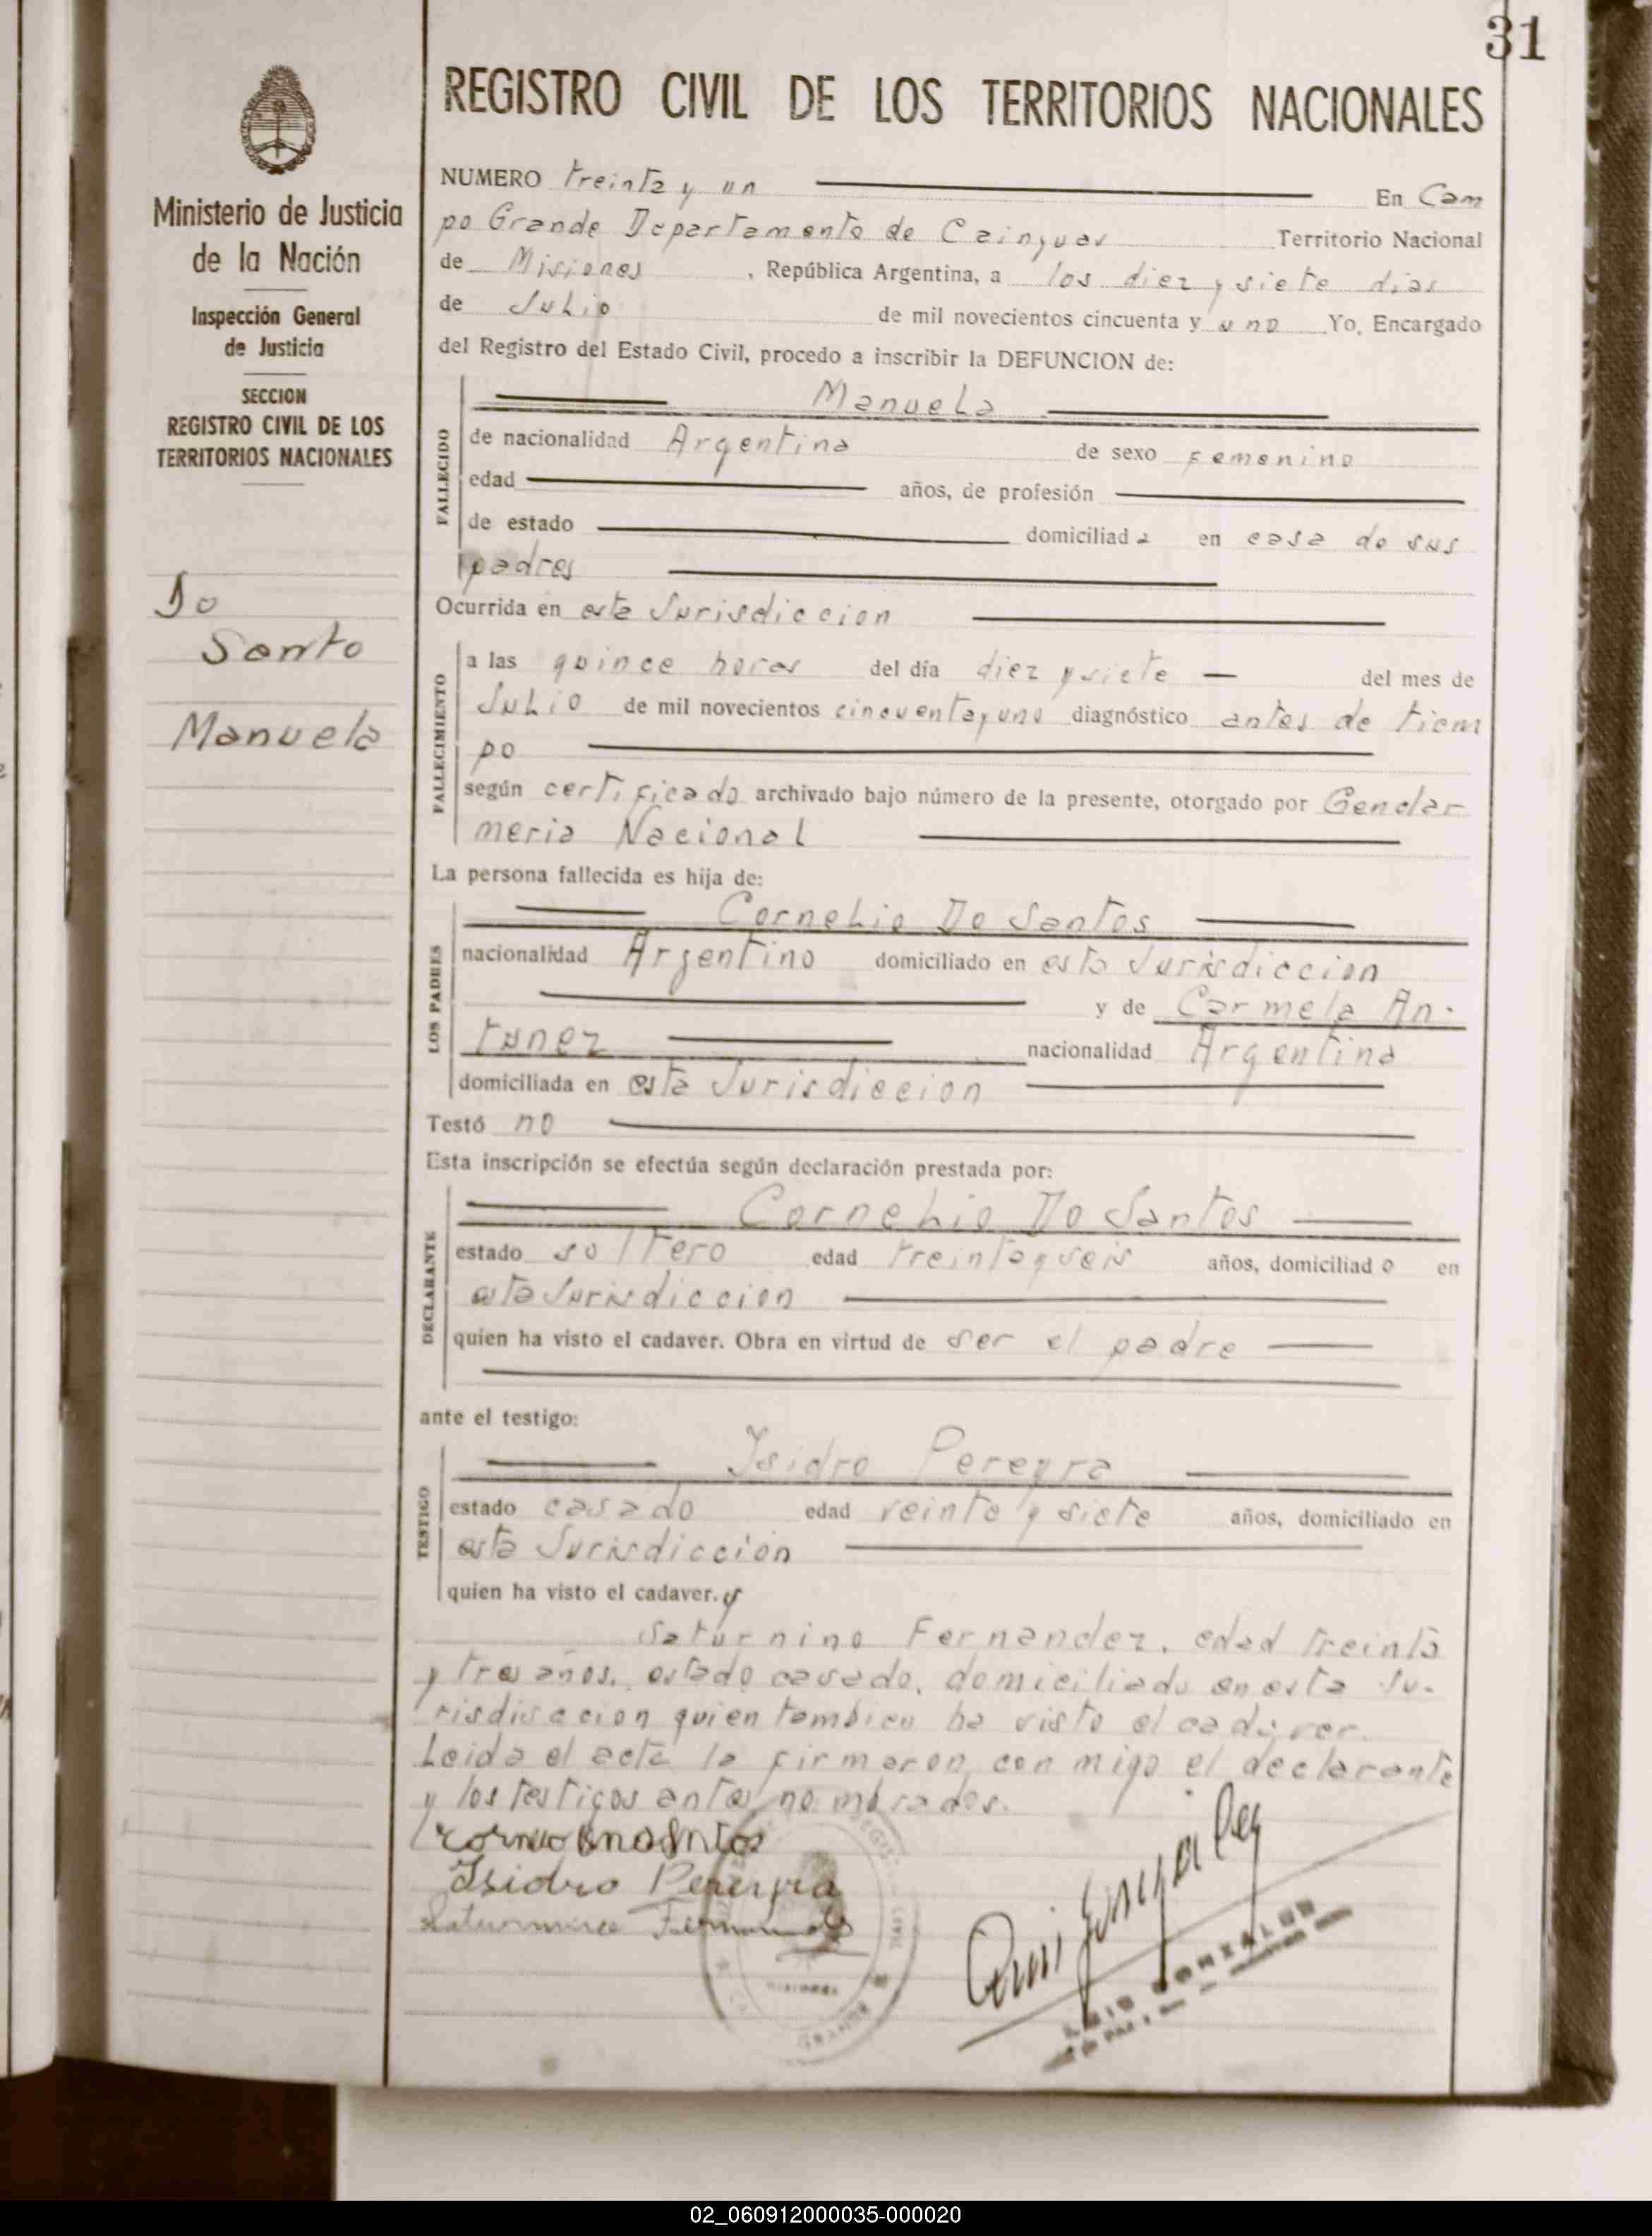 31
REGISTRO CIVIL DE LOS TERRITORIOS NACIONALES
Ministerio de Justicia
de la Nación
Inspección General
de Justicia
SECCION
REGISTRO CIVIL DE LOS
TERRITORIOS NACIONALES
Do
Santo
Manuela
NUMERO treinta y un En Cam
po Grande Departamento de Cainguas Territorio Nacional
de Misiones, República Argentina, a los diez y siete dias
de Julio de mil novecientos cincuenta y uno Yo, Encargado
del Registro del Estado Civil, procedo a inscribir la DEFUNCION de:
FALLECIDO
Manuela
de nacionalidad Argentina de sexo femenino
edad años, de profesión
de estado domiciliada en casa de sus
padres
Ocurrida en esta Jurisdiccion
FALLECIMIENTO
a las quince horas del día diez y siete — del mes de
Julio de mil novecientos cincuenta y uno diagnóstico antes de tiem
po
según certificado archivado bajo número de la presente, otorgado por Gendar
meria Nacional
La persona fallecida es hija de:
LOS PADRES
Cornelio Do Santos
nacionalidad Argentino domiciliado en esta Jurisdiccion
y de Carmela An.
tunez nacionalidad Argentina
domiciliada en esta Jurisdiccion
Testó no
Esta inscripción se efectúa según declaración prestada por:
DECLARANTE
Cornelio Do Santos
estado soltero edad treinta y seis años, domiciliado en
esta Jurisdiccion
quien ha visto el cadaver. Obra en virtud de ser el padre
ante el testigo:
TESTIGO
Isidro Pereyra
estado casado edad veinte y siete años, domiciliado en
esta Jurisdicción
quien ha visto el cadaver. y
Saturnino Fernandez, edad treinta
y tres años, estado casado, domiciliado en esta Ju-
risdiccion quien tambien ha visto el cadaver.
Leida el acta la firmaron con migo el declarante
y los testigos antes nombrados.
Isidro Pereyra
Saturnino
LUIS GONZALEZ
MISIONES
GRANDE
02_060912000035-000020